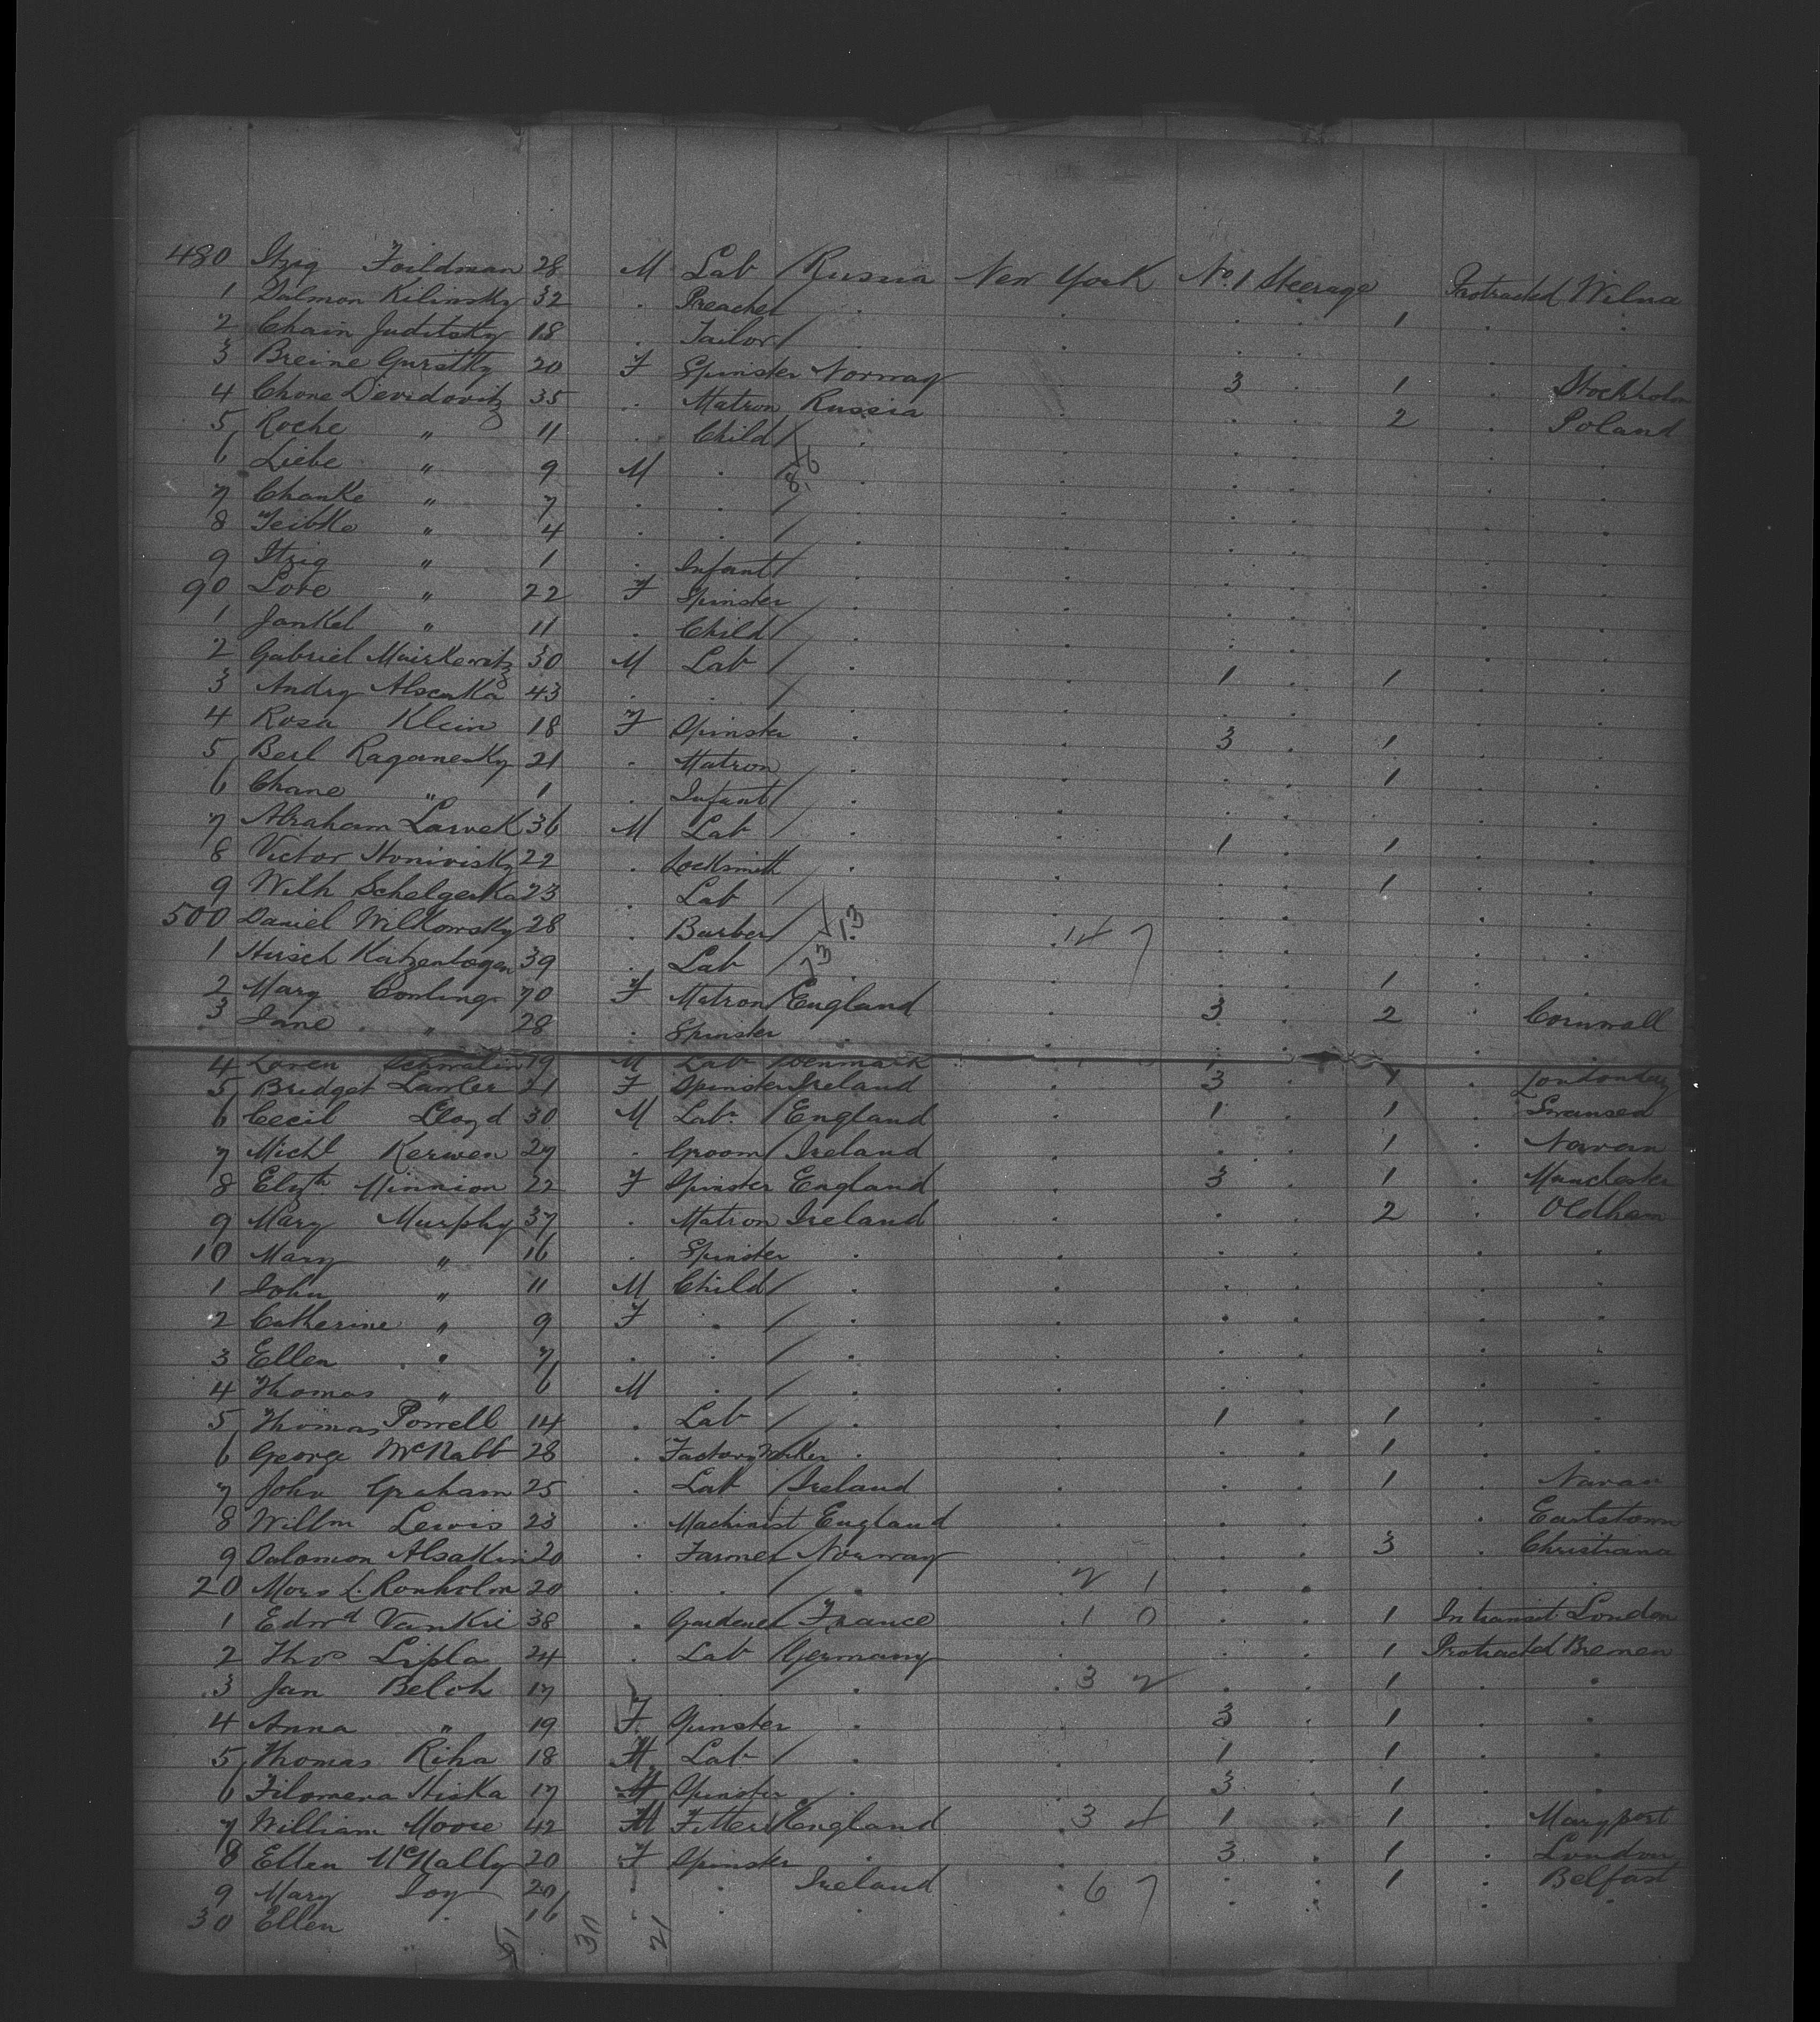 480 Itzig Foildman 28 M Lab Russia New York No. 1 Steerage Protracted Wilna
1 Dalmon Kilinsky 32 . Preacher . . . . 1 . .
2 Chain Juditsky 18 . Tailor . . . .
3 Breine Gursitky 20 F Spinster Norway . 3 . 1 . Stockholm
4 Chone Devidovitz 35 . Matron Russia . . . 2 . Poland
5 Roche " 11 . Child . . . . . .
6 Liebe " 9 M . . . . . . .
7 Chanke " 7 . . . . . . . .
8 Feibke " 4 . . . . . . . .
9 Itzig " 1 . Infant . . . . . .
90 Love " 22 F Spinster . . . . . .
1 Jankel " 11 . Child . . . . . .
2 Gabriel Mairkewitz 30 M Lab . . 1 . 1 . .
3 Andry Alsenka 43 . . . . . . . .
4 Rosa Klein 18 F Spinster . . 3 . 1 . .
5 Berl Raganesky 21 . Matron . . . . 1 . .
6 Chane " 1 . Infant . . . . . .
7 Abraham Larvek 36 M Lab . . 1 . 1 . .
8 Victor Honivisky 22 . Locksmith . . . . 1 . .
9 With Schelgerka 23 . Lab . . . . .
500 Daniel Wilkowsky 28 . Barber . 14 7 . . . .
1 Hirsch Katzenbogen 39 . Lab . . . . 1 . .
2 Mary Conling 70 F Matron England . 3 . 2 . Cornwall
3 Jane " 28 . Spinster . . . . . .
4 Loren Schmalin 19 M Lab Denmark
5 Bridget Lawler 21 F Spinster Ireland . 3 . 1 . Londonderry
6 Cecil Lloyd 30 M Lab. England . 1 . 1 . Swansea
7 Michl Kerwen 27 . Groom Ireland . . . 1 . Navan
8 Elizth Minnion 22 F Spinster England . 3 . 1 . Manchester
9 Mary Murphy 37 . Matron Ireland . . . 2 . Oldham
10 Mary " 16 . Spinster . . . . . .
1 John " 11 M Child . . . . . .
2 Catherine " 9 F . . . . . . .
3 Ellen " 7 . . . . . . . .
4 Thomas " 6 M . . . . . . .
5 Thomas Powell 14 . Lab . . 1 . 1 . .
6 George McNabb 28 . Factory Worker . . . . 1 . .
7 John Graham 25 . Lab Ireland . . . 1 . Navan
8 Willm Lewis 23 . Machinist England . . . . Earlstown
9 Salomon Alsakin 20 . Farmer Norway . . . 3 . Christiana
20 Mons L. Ronholm 20 . . . 2 1 . . . .
1 Edwd Vankie 38 . Gardener France . 1 0 . . 1 In transit London
2 Thos Lipla 24 . Lab Germany . . . 1 Protracted Bremen
3 Jan Beloh 17 . . 3 2 . . 1 . .
4 Anna " 19 F. Spinster . . 3 . 1 . .
5 Thomas Riha 18 M Lab . . 1 . 1 . .
6 Filomena Hiska 17 Spinster . . 3 . 1 . .
7 William Moore 42 M Fitter England . 3 4 1 . 1 . Maryport
8 Ellen McNally 20 F Spinster . . 3 . 1 . London
9 Mary Joy 20 . . Ireland . 6 7 . . 1 . Belfast
30 Ellen . 16 . . . . . . . .
51 30 21